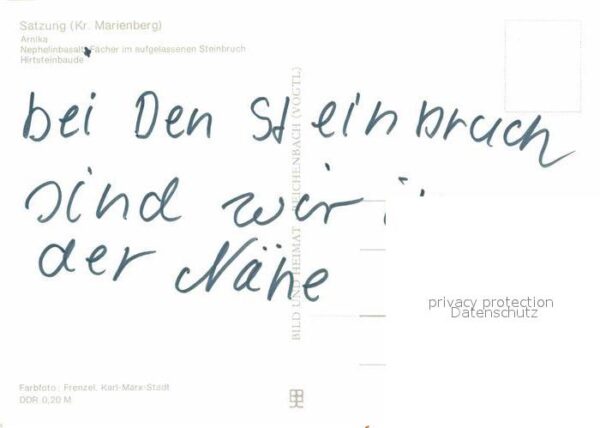 Satzung (Kr. Marienberg)
Arnika
Nephelinbasalt-Fächer im aufgelassenen Steinbruch
Hirtsteinbaude
bei Den Steinbruch
sind wir
der Nähe
BILD UND HEIMAT REICHENBACH (VOGTL)
privacy protection
Datenschutz
Farbfoto: Frenzel, Karl-Marx-Stadt
DDR 0,20 M